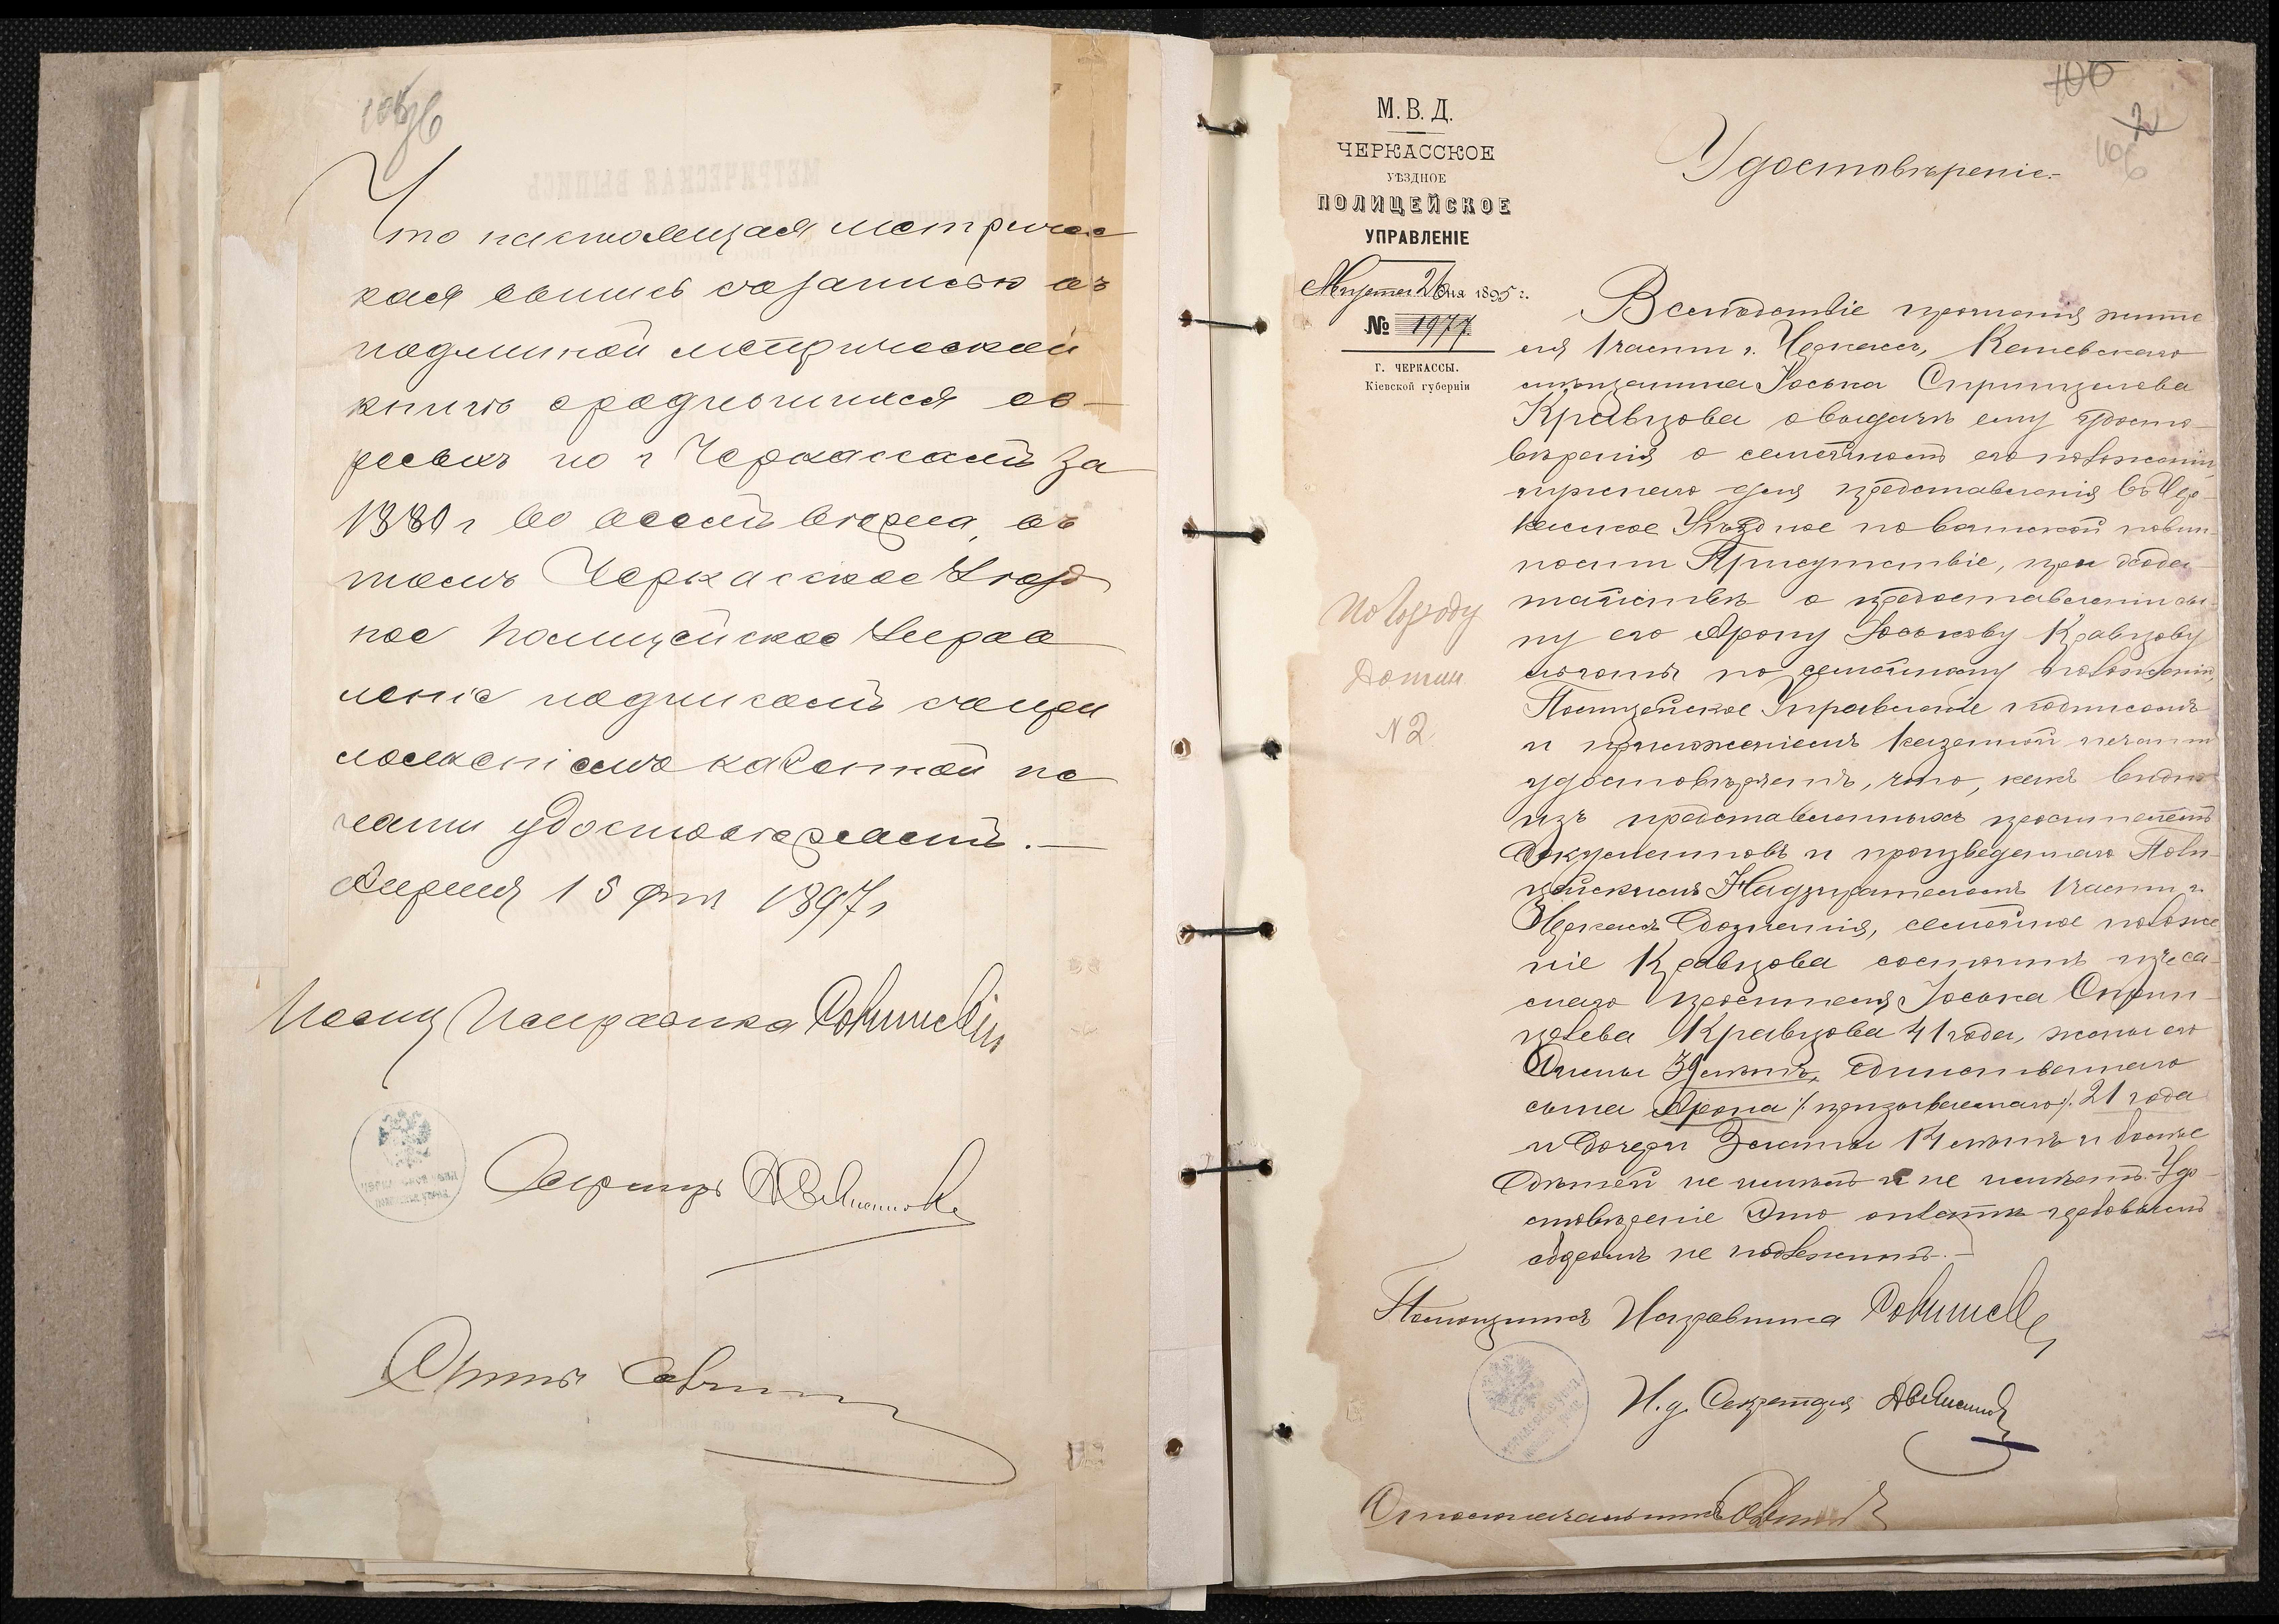 Что настоящая метричес
кая выпись созаписью въ
подлинной метрической
книгѣ ородившихся ев-
реевъ по г Черкассамъ за
1880 г во всемъ вѣрна, въ
томъ Черкасское Уѣзд
ное Полицейское Управ
леніе подписомъ сопри
ложеніемъ казенной пе
чати удостовѣряетъ.—
Апрѣля 15 дня 1897 г
Помощ Исправника
Секретарь
М. В. Д.
ЧЕРКАССКОЕ
УѢЗДНОЕ
ПОЛИЦЕЙСКОЕ
УПРАВЛЕНІЕ
Августа 26 дня 1895 г.
№ 1977
Г. ЧЕРКАССЫ.
Кіевской губерніи
По городу
Домъ
N 2.
106
Удостовѣреніе.
Вслѣдствіе прошенія жите
ля 1 части г. Черкассъ, Каневскаго
мѣщанина Іоська Сприцилева
Кравцова о выдачѣ ему удосто-
вѣренія о семейномъ его положеніи,
нужнаго для представленія въ Чер-
касское Уѣздное по воинской повин-
ности Присутствіе, при хода-
тайствѣ о предоставленіи сы-
ну его Арону Іоськову Кравцову
льготы по семейному положенію,
Полицейское Управленіе подписомъ
и приложеніемъ казенной печати
удостовѣряетъ, что, какъ видно
изъ представленныхъ просителемъ
документовъ и произведеннаго Поли-
цейскимъ Надзирателемъ 1 части г.
Черкассъ дознанія, семейное положе
ніе Кравцова состоитъ изъ са-
маго просителя Іоська Сприн-
целева Кравцова 41 года, жены его
39 лѣтъ, единственнаго
сына Арона /: призываемаго :/ 21 года
и дочери Златы 14 лѣтъ и болѣе
дѣтей не имѣлъ и не имѣетъ. Удо-
стовѣреніе это оплатѣ гербовымъ
сборомъ не подлежитъ.—
Помощникъ Исправника
И. д. Секретаря
Столоначальникъ